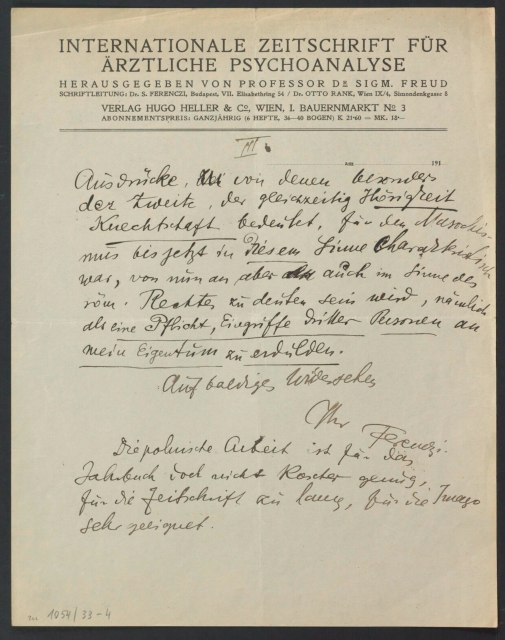 INTERNATIONALE ZEITSCHRIFT FÜR
ÄRZTLICHE PSYCHOANALYSE
HERAUSGEGEBEN VON PROFESSOR DR SIGM. FREUD
SCHRIFTLEITUNG: Dr. S. FERENCZI, Budapest, VII. Elisabethring 54 / Dr. OTTO RANK, Wien IX/4, Simondenkgasse 8
VERLAG HUGO HELLER & Co, WIEN, I. BAUERNMARKT No 3
ABONNEMENTSPREIS: GANZJÄHRIG (6 HEFTE, 36—40 BOGEN) K 21·60 = MK. 18·—
am 191
Ausdrücke, von denen besonders
der zweite, der gleichzeitig Hörigkeit
Knechtschaft bedeutet, für den Masochis-
mus bis jetzt in diesem Sinne
war, von nun an aber auch im Sinne des
röm. Rechtes zu deuten sein wird, nämlich
als eine Pflicht, Eingriffe dritter Personen an
mein Eigentum zu erdulden.
Auf baldiges Wiedersehen
Ihr Ferenczi.
Die polnische Arbeit ist für das
Jahrbuch doch nicht genug,
für die Zeitschrift zu lang, für die Imago
sehr geeignet.
1054/33-4